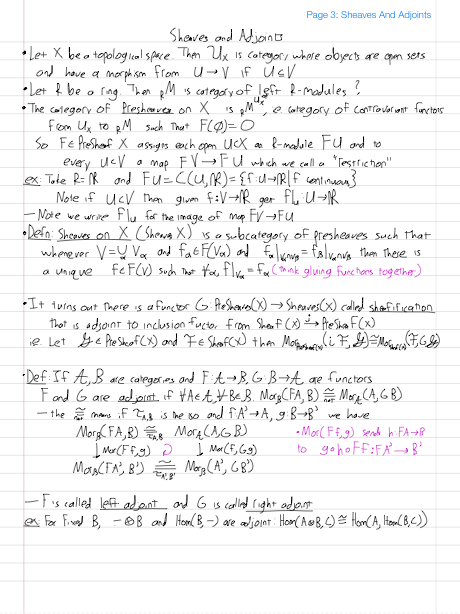 Page 3: Sheaves And Adjoints
Sheaves and Adjoints
• Let X be a topological space. Then 𝒰_X is category where objects are open sets
and have a morphism from U → V if U ⊆ V
• Let R be a ring. Then _RM is category of left R-modules ?
• The category of Presheaves on X is _RM^{𝒰_X}, ie category of contravariant functors
from 𝒰_X to _RM such that F(∅) = 0
So F ∈ Presheaf X assigns each open U⊂X an R-module FU and to
every U⊂V a map FV → FU which we call a "restriction"
ex: Take R = ℝ and FU = C(U,ℝ) = {f: U→ℝ | f continuous}
Note if U⊂V then given f: V→ℝ get f|_U : U→ℝ
— Note we write F|_U for the image of map FV → FU
• Defn: Sheaves on X (Sheaves X) is a subcategory of presheaves such that
whenever V = ∪_α V_α and f_α ∈ F(V_α) and f_α|_{V_α∩V_β} = f_β|_{V_α∩V_β} then there is
a unique f ∈ F(V) such that ∀α, f|_{V_α} = f_α (think gluing functions together)
• It turns out there is a functor G: PreSheaves(X) → Sheaves(X) called sheafification
that is adjoint to inclusion functor from Sheaf(X) →^i PreSheaf(X)
ie. Let 𝒢 ∈ PreSheaf(X) and ℱ ∈ Sheaf(X) then Mor_{PreSheaf(X)}(i ℱ, 𝒢) ≅ Mor_{Sheaf(X)}(ℱ, G𝒢)
• Def: If A, B are categories and F: A→B, G: B→A are functors
F and G are adjoint if ∀A∈A, ∀B∈B. Mor_B(FA, B) ≅_{nat} Mor_A(A, GB)
— the ≅_{nat} means if τ_{A,B} is the iso and f: A'→A, g: B→B' we have
Mor_B(FA, B) ≅_{τ_{A,B}} Mor_A(A, GB) • Mor(Ff, g) sends h: FA→B
↓ Mor(Ff, g) ↻ ↓ Mor(f, Gg) to g∘h∘Ff : FA' → B'
Mor_B(FA', B') ≅_{τ_{A',B'}} Mor_B(A', GB')
— F is called left adjoint and G is called right adjoint
ex: For Fixed B, −⊗B and Hom(B,−) are adjoint: Hom(A⊗B, C) ≅ Hom(A, Hom(B,C))